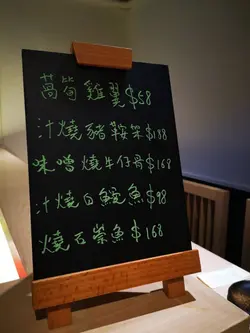 萵筍雞翼$58
汁燒豬鞍架$188
味噌燒牛仔骨$168
汁燒白鱔魚$98
燒石崇魚$168